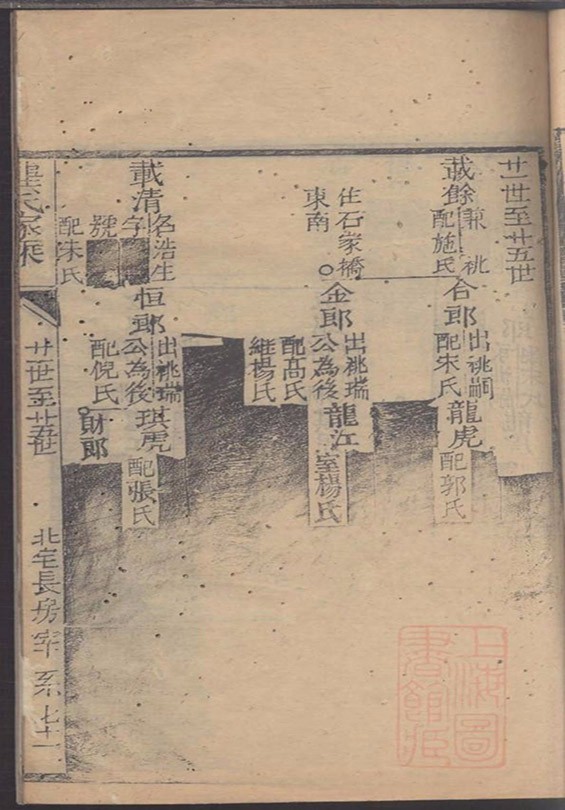 廿一世至廿五世
兼祧
配施氏
合郎
出祧嗣
配宋氏
龍虎
配郭氏
住石家橋
東南
金郎
出祧瑞
公為後
配高氏
継楊氏
龍江
室楊氏
載清
名浩生
字
號
配朱氏
恒郎
出祧瑞
公為後
配倪氏
琪虎
配張氏
財郎
氏家乘
廿世至廿五世
北宅長房
系七十一
上海圖
書館藏